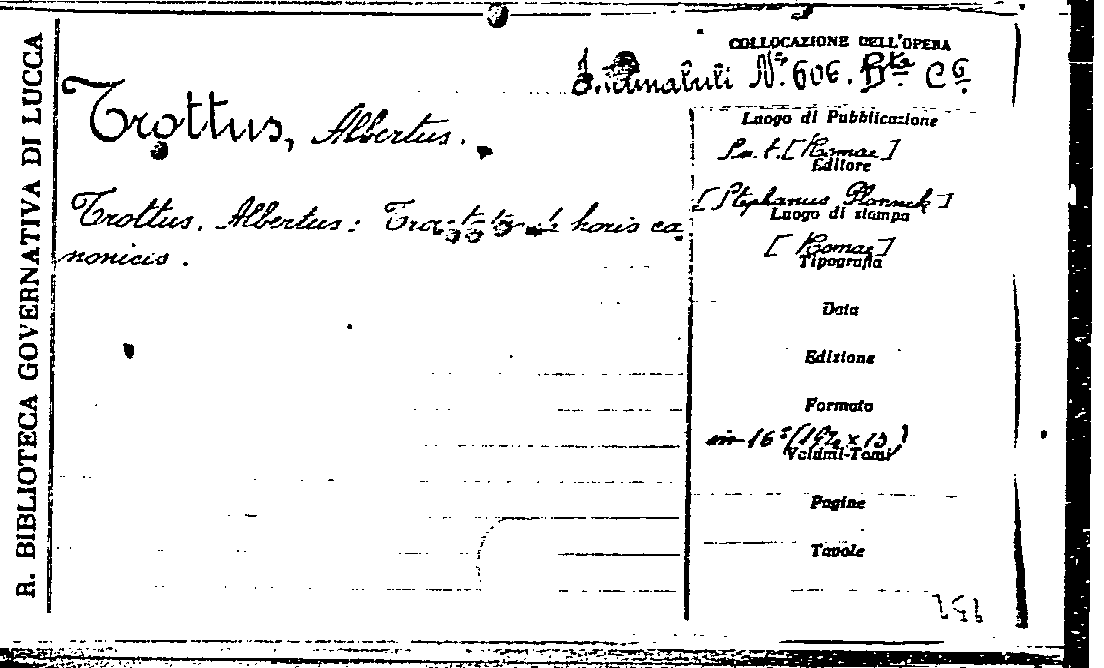 R. BIBLIOTECA GOVERNATIVA DI LUCCA
COLLOCAZIONE DELL'OPERA
Incunabuli N.º 606. Bta C6.
Trottus, Albertus.
Trottus. Albertus: horis ca
nonicis.
Luogo di Pubblicazione
S. n. t. [Romae]
Editore
[Stephanus Plannck]
Luogo di stampa
[Romae]
Tipografia
Data
Edizione
Formato
in 16º
Volumi-Tomi
Pagine
Tavole